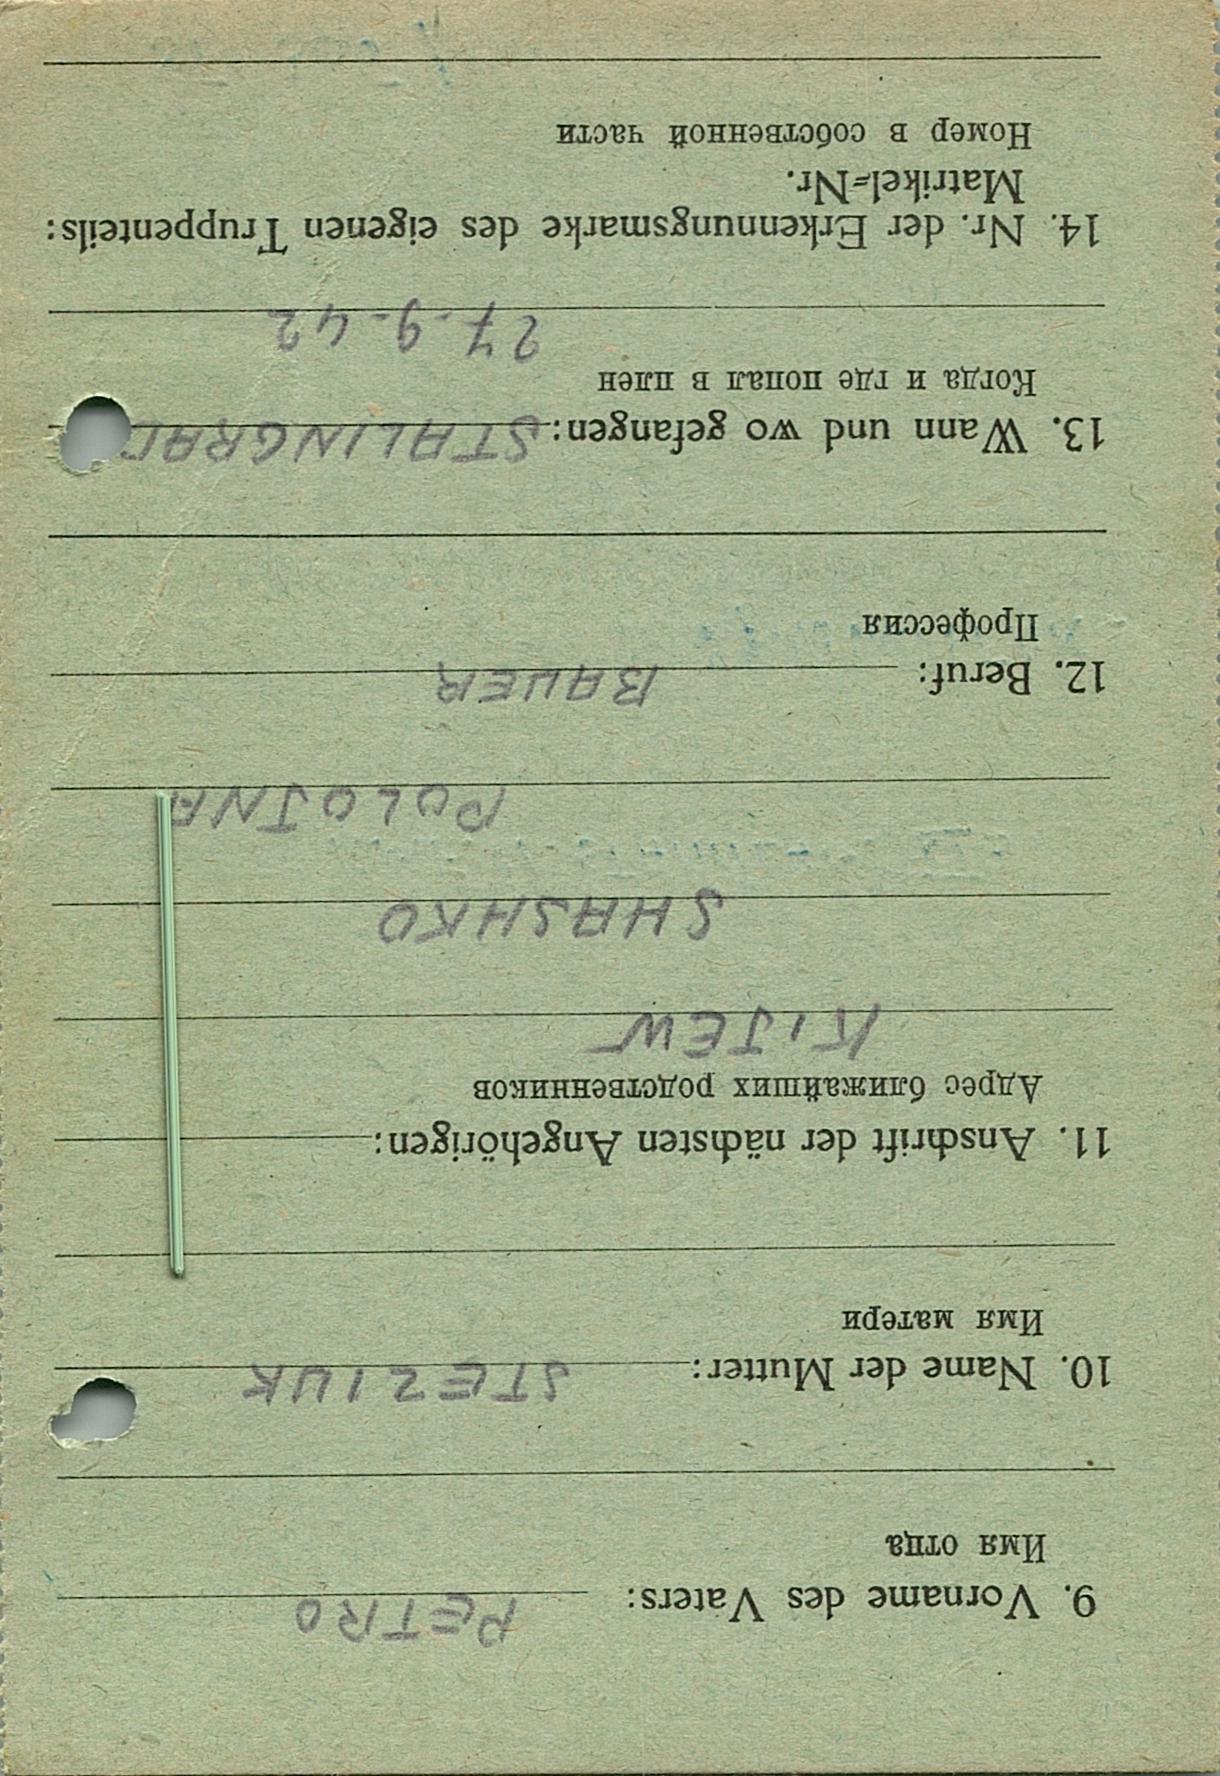 9. Vorname des Vaters: PETRO
Имя отца
10. Name der Mutter: STEZIUK
Имя матери
11. Anschrift der nächsten Angehörigen:
Адрес ближайших родственников
KIJEW
SHASHKO
POLOJNA
12. Beruf: BAUER
Профессия
13. Wann und wo gefangen: STALINGRAD
Когда и где попал в плен
27.9-42
14. Nr. der Erkennungsmarke des eigenen Truppenteils:
Matrikel=Nr.
Номер в собственной части